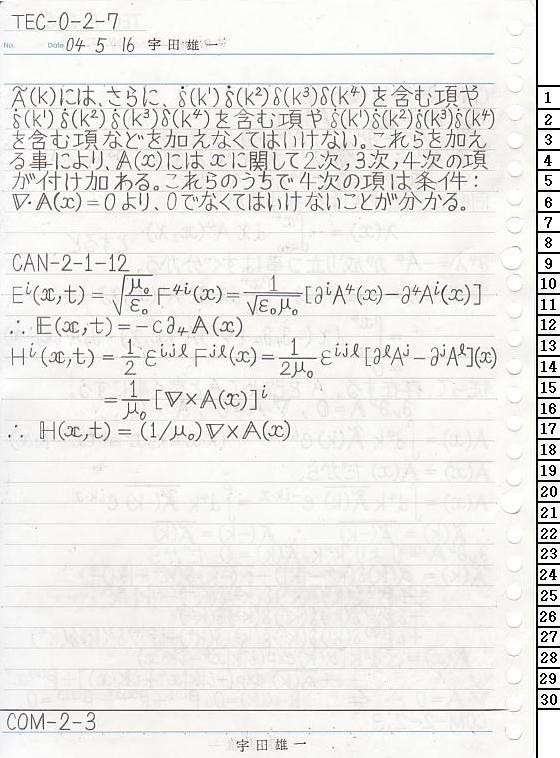 TEC-0-2-7
No. Date 04 5 16 宇田雄一
Ã(k)には、さらに、δ̇(k¹)δ̇(k²)δ(k³)δ(k⁴)を含む項や
δ̇(k¹)δ̇(k²)δ̇(k³)δ(k⁴)を含む項やδ̇(k¹)δ̇(k²)δ̇(k³)δ̇(k⁴)
を含む項などを加えなくてはいけない。これらを加え
る事により、A(x)にはxに関して2次,3次,4次の項
が付け加わる。これらのうちで4次の項は条件:
∇·A(x)=0より、0でなくてはいけないことが分かる。
CAN-2-1-12
Eⁱ(x,t)=√(μ₀/ε₀) F⁴ⁱ(x)=1/√(ε₀μ₀) [∂ⁱA⁴(x)-∂⁴Aⁱ(x)]
∴ E(x,t)=-c∂₄A(x)
Hⁱ(x,t)=1/2 εⁱʲˡFʲˡ(x)=1/(2μ₀) εⁱʲˡ[∂ˡAʲ-∂ʲAˡ](x)
=1/μ₀ [∇×A(x)]ⁱ
∴ H(x,t)=(1/μ₀)∇×A(x)
COM-2-3
宇田雄一
1
2
3
4
5
6
7
8
9
10
11
12
13
14
15
16
17
18
19
20
21
22
23
24
25
26
27
28
29
30